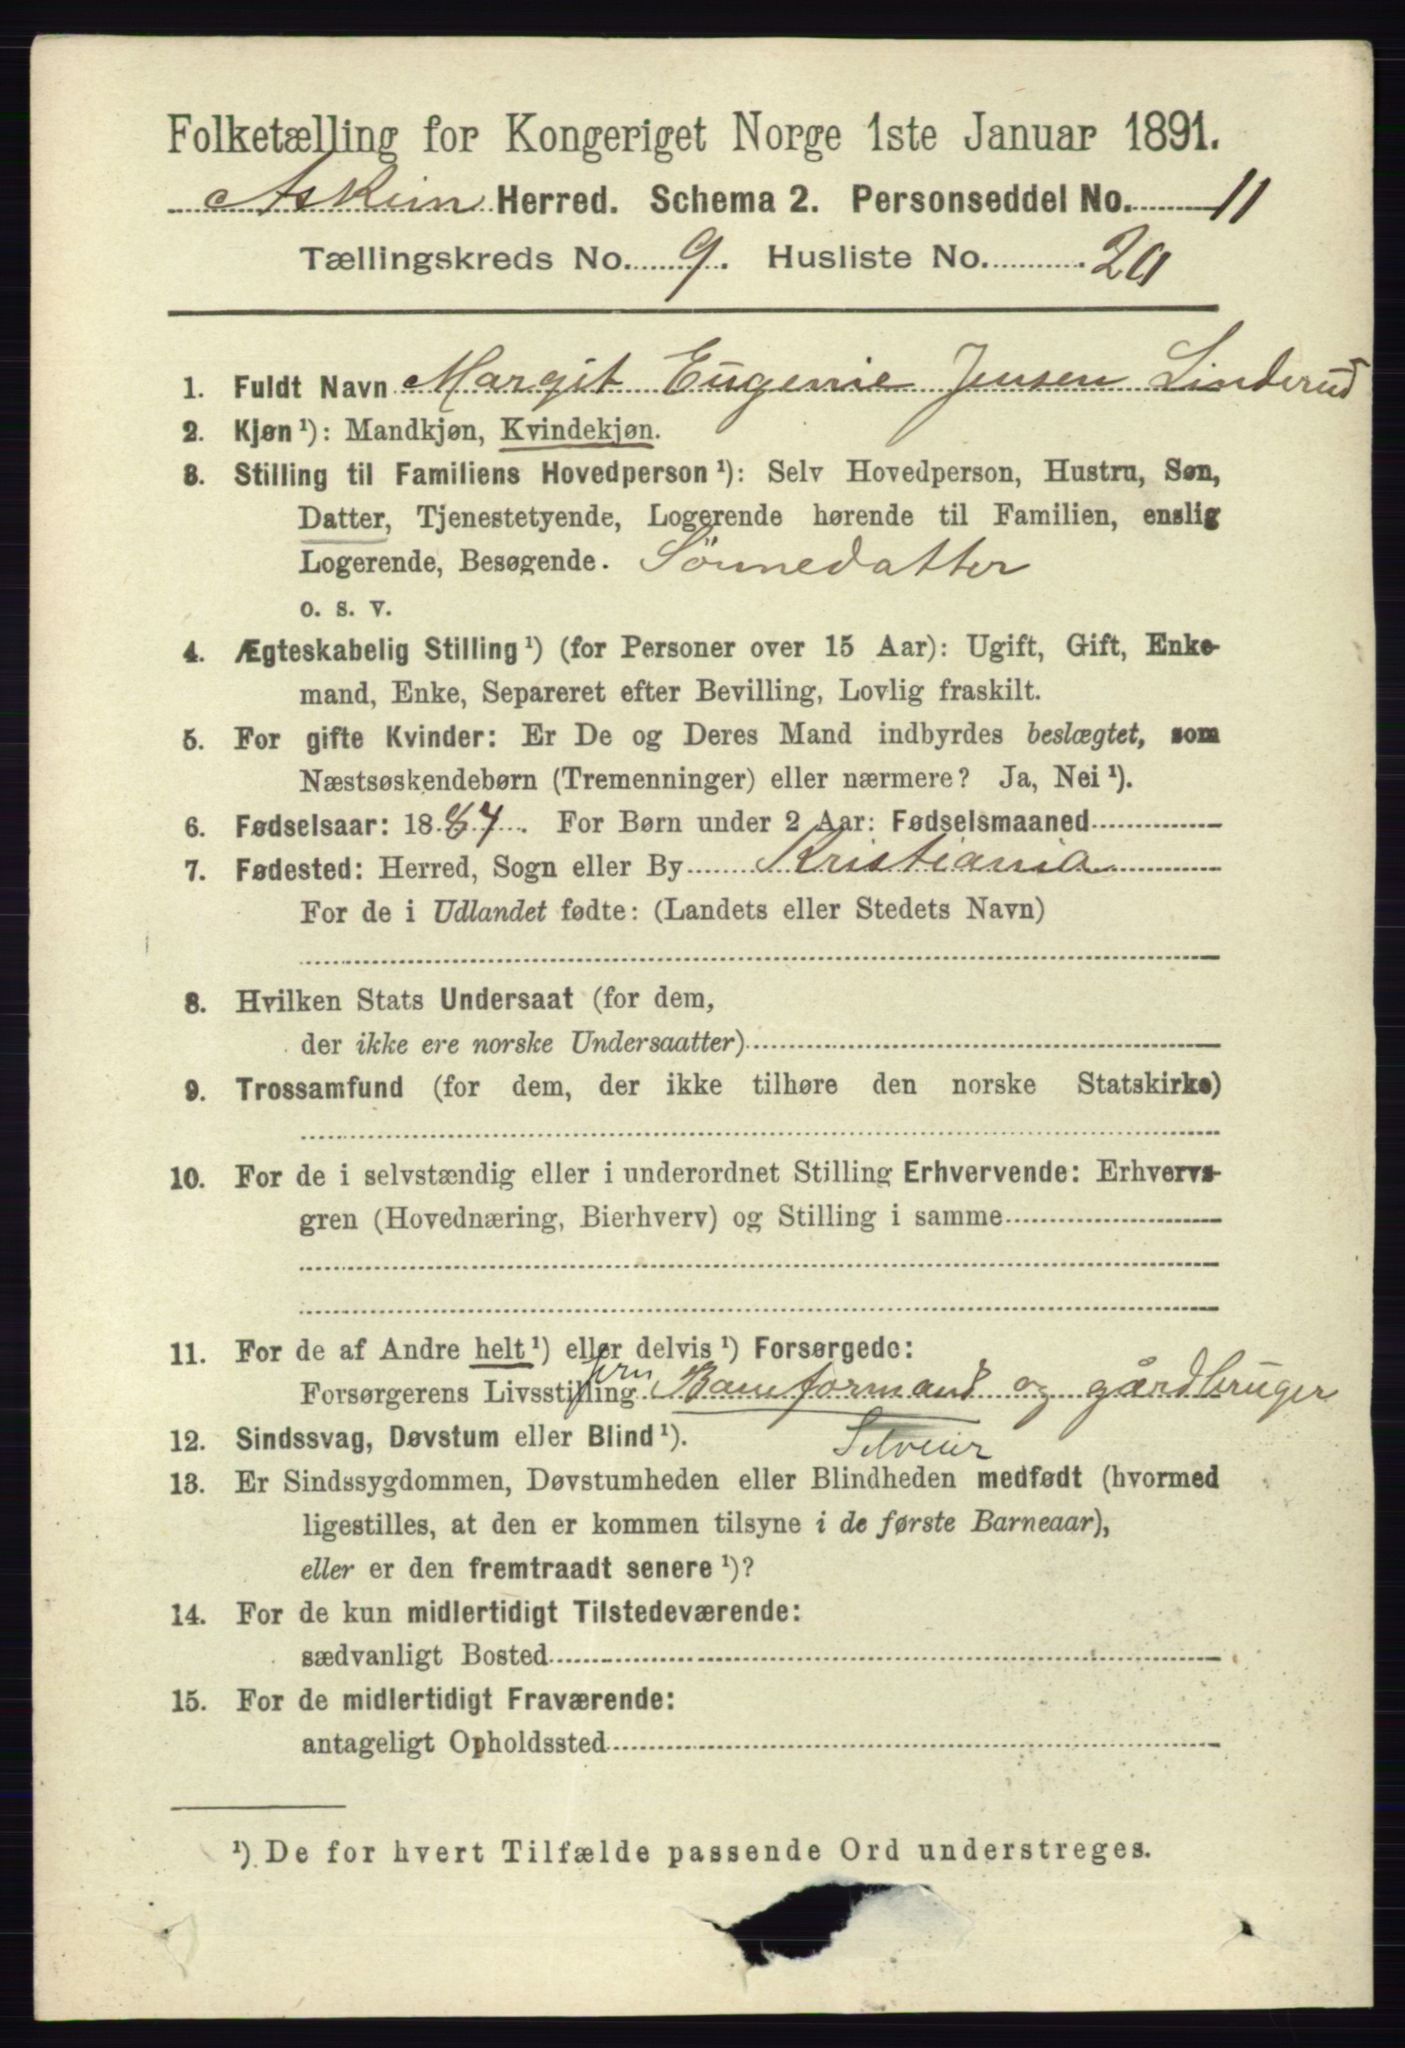 Folketælling for Kongeriget Norge 1ste Januar 1891.
Askim Herred. Schema 2. Personseddel No. 11
Tællingskreds No. 9. Husliste No. 20
1. Fuldt Navn Margit Eugenie Jensen Linderud
2. Kjøn¹): Mandkjøn, Kvindekjøn.
3. Stilling til Familiens Hovedperson¹): Selv Hovedperson, Hustru, Søn,
Datter, Tjenestetyende, Logerende hørende til Familien, enslig
Logerende, Besøgende. Sönnedatter
o. s. v.
4. Ægteskabelig Stilling¹) (for Personer over 15 Aar): Ugift, Gift, Enke-
mand, Enke, Separeret efter Bevilling, Lovlig fraskilt.
5. For gifte Kvinder: Er De og Deres Mand indbyrdes beslægtet, som
Næstsøskendebørn (Tremenninger) eller nærmere? Ja, Nei¹).
6. Fødselsaar: 1887. For Børn under 2 Aar: Fødselsmaaned
7. Fødested: Herred, Sogn eller By Kristiania
For de i Udlandet fødte: (Landets eller Stedets Navn)
8. Hvilken Stats Undersaat (for dem,
der ikke ere norske Undersaatter)
9. Trossamfund (for dem, der ikke tilhøre den norske Statskirke)
10. For de i selvstændig eller i underordnet Stilling Erhvervende: Erhvervs-
gren (Hovednæring, Bierhverv) og Stilling i samme
11. For de af Andre helt¹) eller delvis¹) Forsørgede:
Forsørgerens Livsstilling Baneformand og gårdbruger
12. Sindssvag, Døvstum eller Blind¹). Selveier
13. Er Sindssygdommen, Døvstumheden eller Blindheden medfødt (hvormed
ligestilles, at den er kommen tilsyne i de første Barneaar),
eller er den fremtraadt senere¹)?
14. For de kun midlertidigt Tilstedeværende:
sædvanligt Bosted
15. For de midlertidigt Fraværende:
antageligt Opholdssted
¹) De for hvert Tilfælde passende Ord understreges.